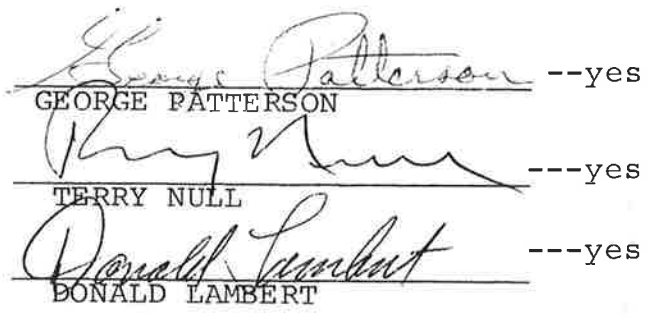 George Patterson --yes
GEORGE PATTERSON
Terry Null ---yes
TERRY NULL
Donald Lambert ---yes
DONALD LAMBERT